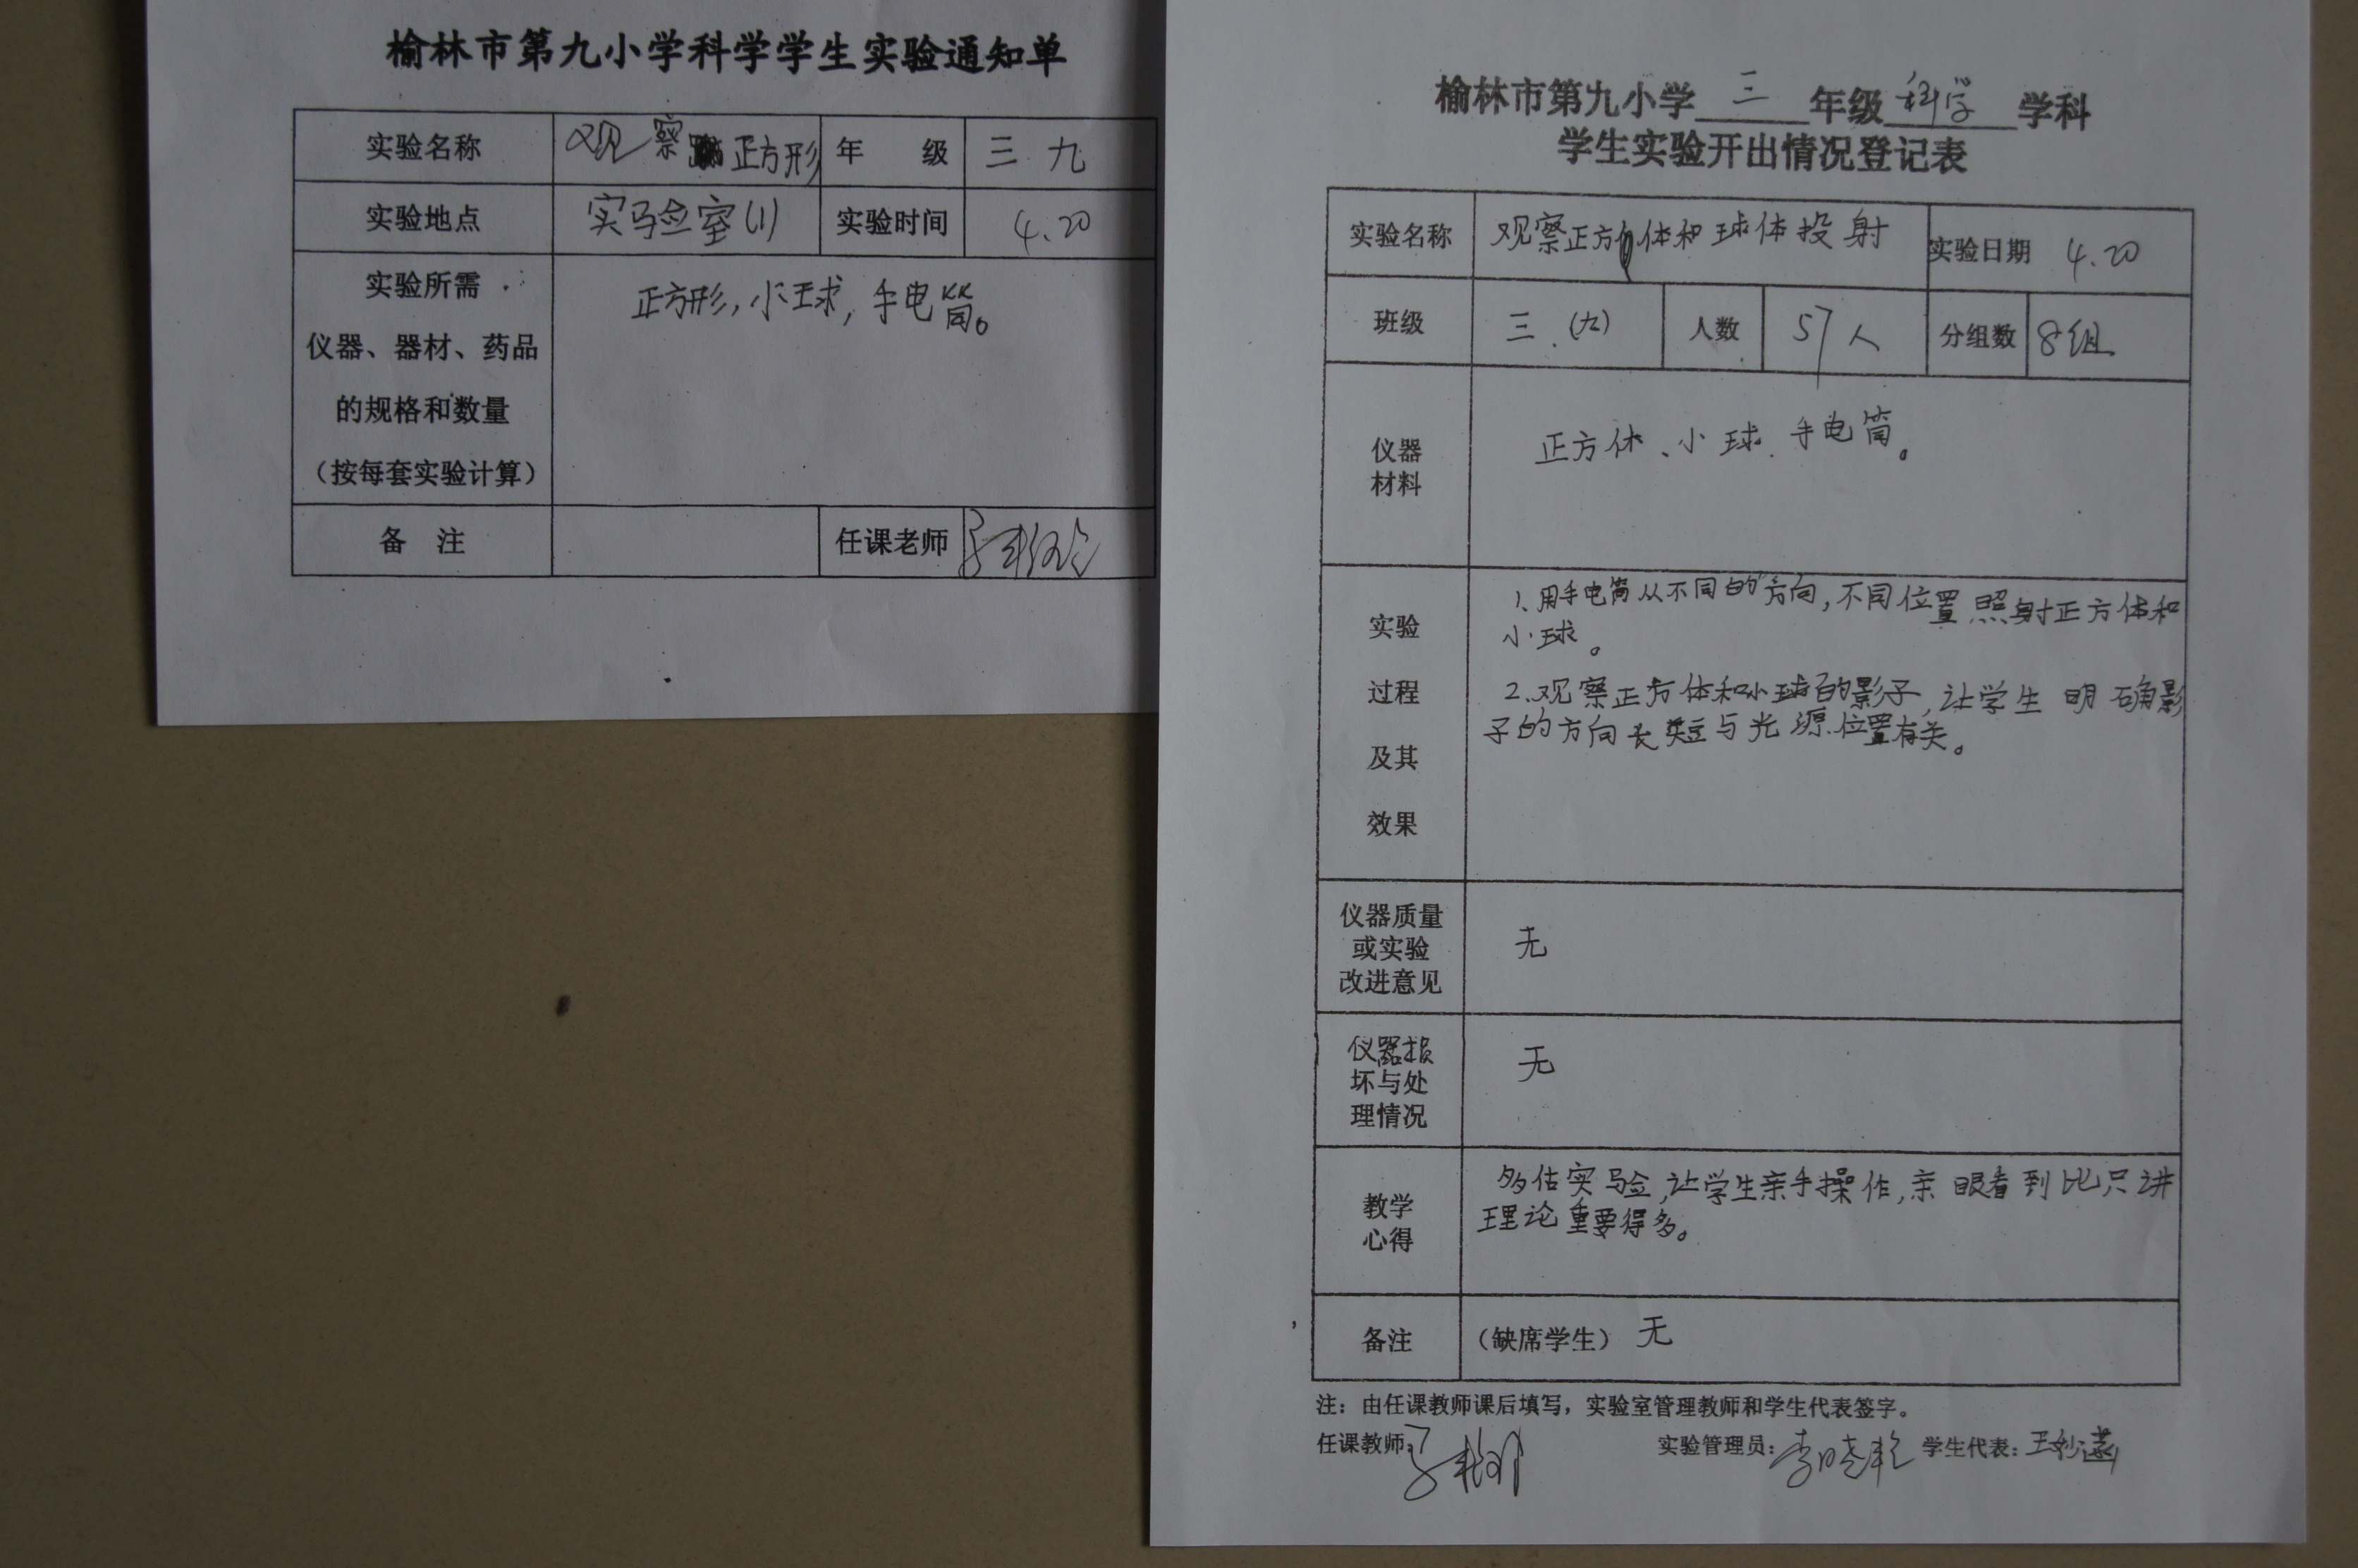 榆林市第九小学科学学生实验通知单
实验名称 观察正方形 年 级 三 九
实验地点 实验室(1) 实验时间 4.20
实验所需
仪器、器材、药品
的规格和数量
（按每套实验计算）
正方形，小球，手电筒。
备 注 任课老师
榆林市第九小学 三 年级 科学 学科
学生实验开出情况登记表
实验名称 观察正方体和球体投射 实验日期 4.20
班级 三.(九) 人数 57人 分组数 8组
仪器
材料
正方体、小球、手电筒。
实验
过程
及其
效果
1、用手电筒从不同的方向，不同位置照射正方体和
小球。
2、观察正方体和小球的影子，让学生明确影
子的方向长短与光源位置有关。
仪器质量
或实验
改进意见
无
仪器损
坏与处
理情况
无
教学
心得
多估实验，让学生亲手操作，亲眼看到比只讲
理论重要得多。
备注 （缺席学生） 无
注：由任课教师课后填写，实验室管理教师和学生代表签字。
任课教师： 实验管理员：李晓艳 学生代表：